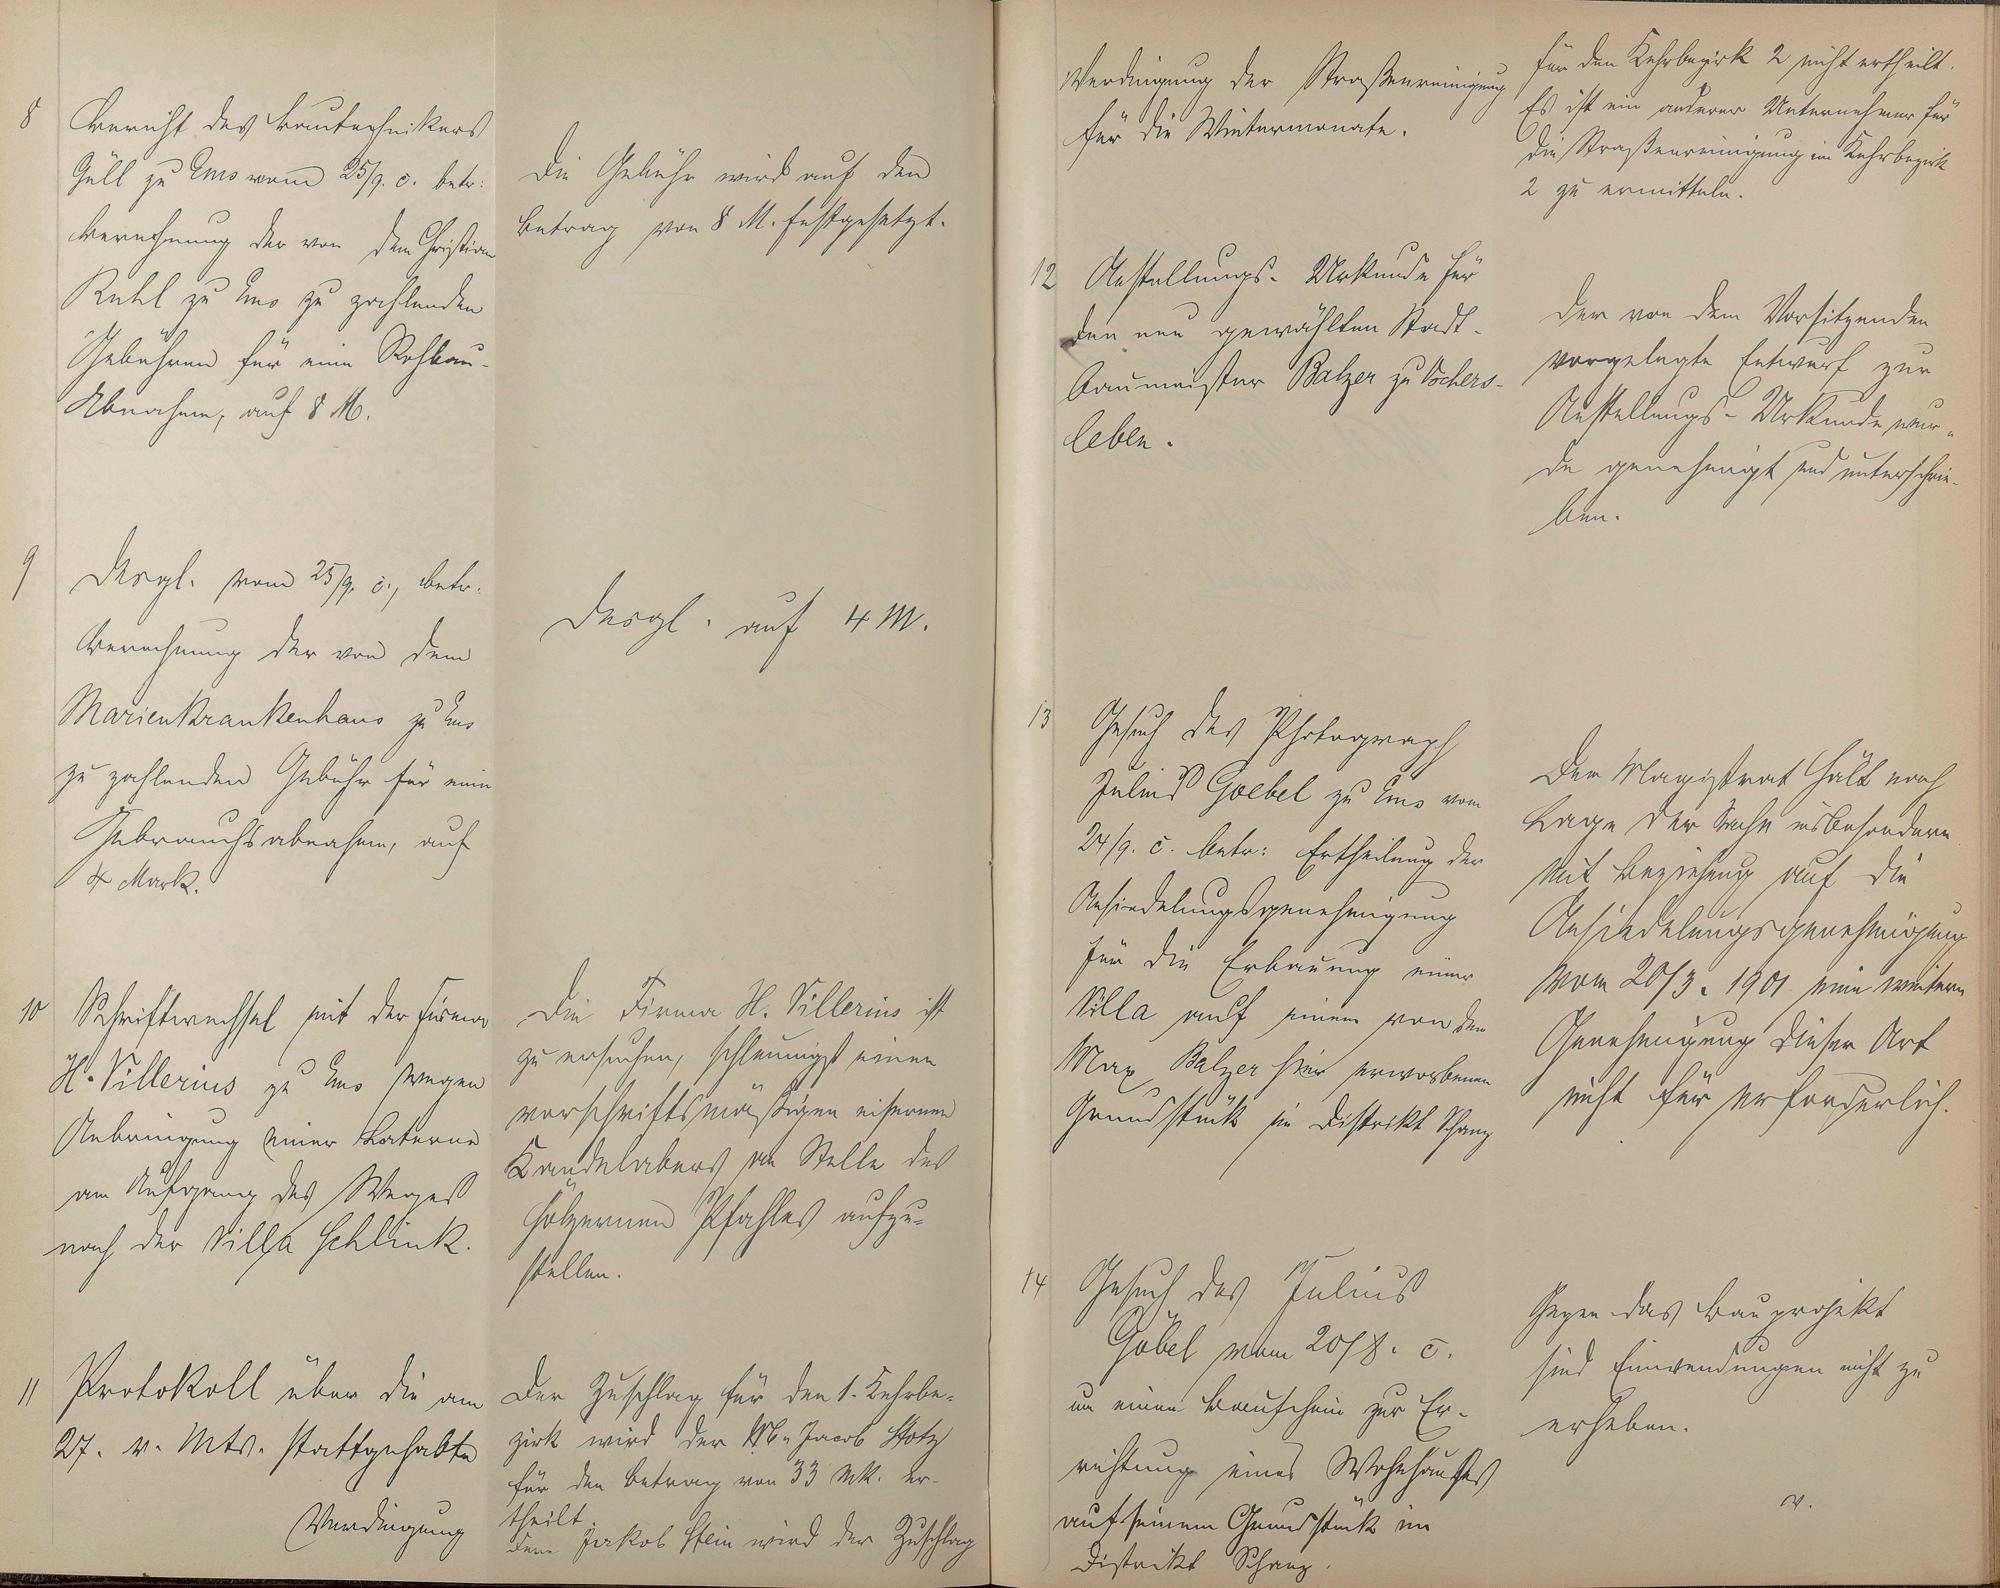 8
Bericht des Bautechnikers
Güll zu Ems vom 25/9. c. betr:
Berechnung der von dem Christian
Ruhl zu Ems zu zahlenden
Gebühren für eine Rohbau-
Abnahme, auf 8 M.
Die Gebühr wird auf den
Betrag von 8 M. festgesetzt.
9
Desgl. vom 25/9. c., betr.
Berechnung der von dem
Marienkrankenhaus zu Ems
zu zahlenden Gebühr für eine
Gebrauchsabnahme, auf
4 Mark.
Desgl. auf 4 M.
10
Schriftwechsel mit der Firma
H. Villerius zu Ems wegen
Anbringung einer Laterne
am Aufgang des Weges
nach der Villa Schlink.
Die Firma H. Villerius ist
zu ersuchen, schleunigst einen
vorschriftsmäßigen eisernen
Kandelabers an Stelle des
hölzernen Pfahles aufzu-
stellen.
11
Protokoll über die am
27. v. Mts. stattgehabte
Verdingung
Der Zuschlag für den 1. Kehrbe-
zirk wird der Jacob Stotz
für den Betrag von 33 Mk. er-
theilt.
Dem Jakob Stein wird der Zuschlag
Verdingung der Straßenreinigung
für die Wintermonate.
für den Kehrbezirk 2 nicht ertheilt.
Es ist ein anderer Unternehmer für
die Straßenreinigung im Kehrbezirk
2 zu ermitteln.
12
Anstellungs-Urkunde für
den neu gewählten Stadt-
baumeister Balzer zu Oschers-
leben.
Der von dem Vorsitzenden
vorgelegte Entwurf zur
Anstellungs-Urkunde wur-
de genehmigt und unterschrie-
ben.
13
Gesuch des Photograph
Julius Goebel zu Ems vom
24/9. c. betr: Ertheilung der
Ansiedelungsgenehmigung
für die Erbauung einer
Villa auf einem von dem
Max Balzer hier erworbenen
Grundstück im Distrikt Schanz
Der Magistrat hält nach
Lage der Sache insbesondere
mit Beziehung auf die
Ansiedelungsgenehmigung
vom 20/3. 1901 eine weitere
Genehmigung dieser Art
nicht für erforderlich.
14
Gesuch des Julius
Göbel vom 20/8. c.
um einen Bauschein zur Er-
richtung eines Wohnhauses
auf seinem Grundstück im
Distrikt Schanz.
Gegen das Bauprojekt
sind Einwendungen nicht zu
erheben.
v.